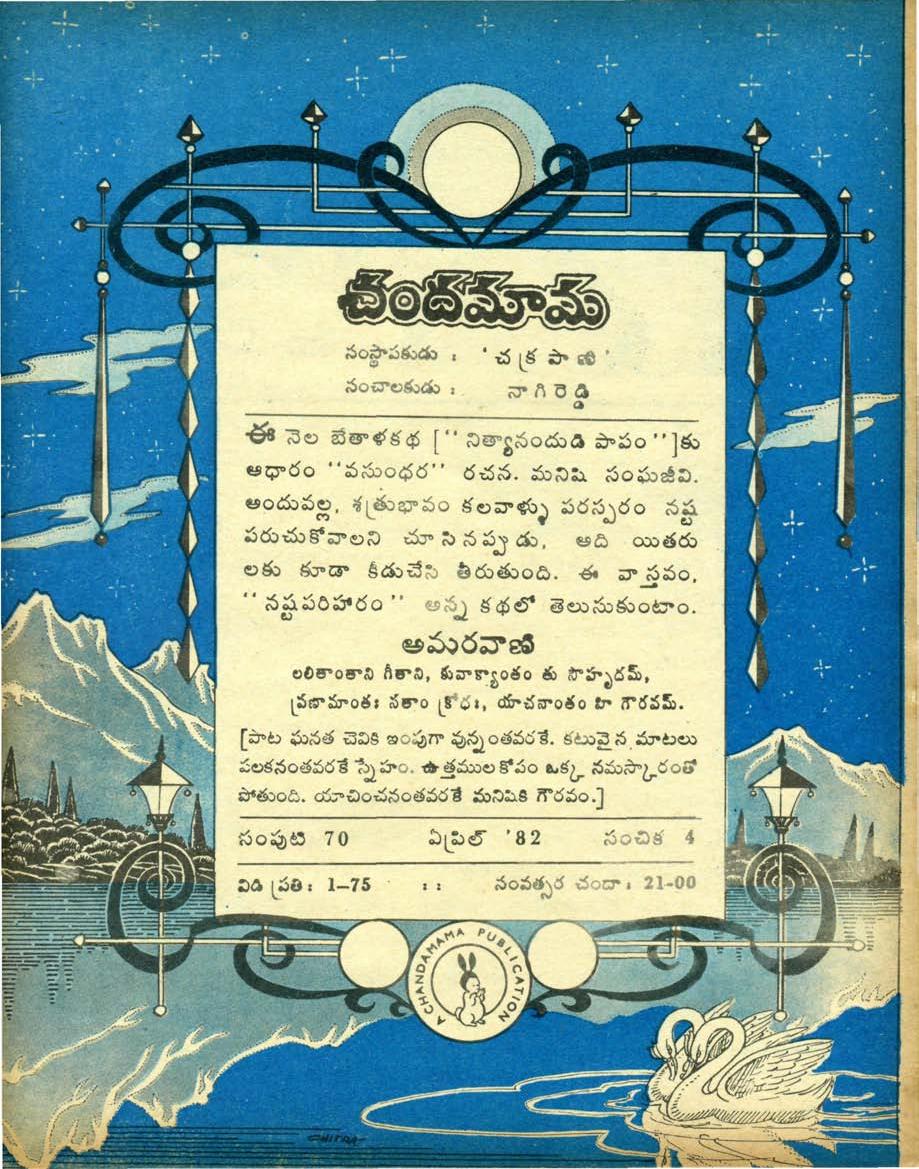 చందమామ
సంస్థాపకుడు : ' చక్రపాణి '
సంచాలకుడు : నాగిరెడ్డి
ఈ నెల బేతాళకథ ["నిత్యానందుడి పాపం"]కు
ఆధారం "వసుంధర" రచన. మనిషి సంఘజీవి.
అందువల్ల, శత్రుభావం కలవాళ్ళు పరస్పరం నష్ట
పరుచుకోవాలని చూసినప్పుడు, అది యితరు
లకు కూడా కీడుచేసి తీరుతుంది. ఈ వాస్తవం,
"నష్టపరిహారం" అన్న కథలో తెలుసుకుంటాం.
అమరవాణి
లలితాంతాని గీతాని, కువాక్యాంతం తు సౌహృదమ్,
ప్రణామాంతః సతాం క్రోధః, యాచనాంతం హి గౌరవమ్.
[పాట ఘనత చెవికి ఇంపుగా వున్నంతవరకే. కటువైన మాటలు
పలకనంతవరకే స్నేహం. ఉత్తముల కోపం ఒక్క నమస్కారంతో
పోతుంది. యాచించనంతవరకే మనిషికి గౌరవం.]
సంపుటి 70 ఏప్రిల్ '82 సంచిక 4
విడి ప్రతి : 1-75 :: సంవత్సర చందా : 21-00
A CHANDAMAMA PUBLICATION
CHITRA